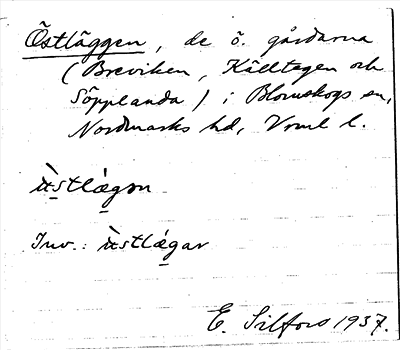 Östläggen, de ö. gårdarna
(Breviken, Källtegen och
Söpplanda) i Blomskogs sn,
Nordmarks hd, Vrml l.
Inv.:
E. Silfors 1937.